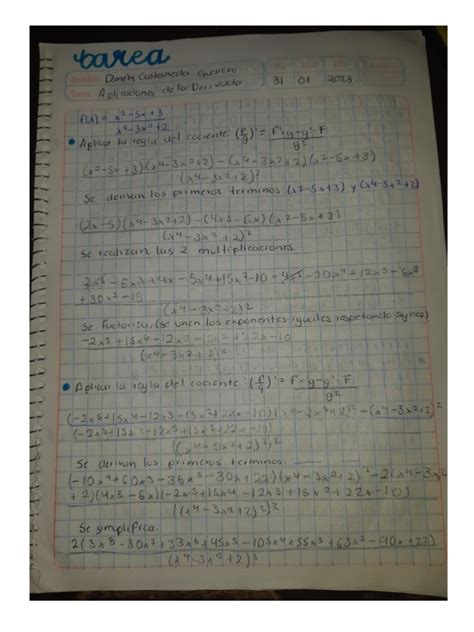 tarea
Nombre: Danely Castañeda Guerrero Dia Mes Año
Tema: Aplicaciones de la Derivada 31 01 2023
F(x) = x²-5x+3
x⁴-3x²+2
• Aplicar la regla del cociente (F/g)' = F'·g-g'·F
g²
(x²-5x+3)(x⁴-3x²+2)-(x⁴-3x²+2)(x²-5x+3)
(x⁴-3x²+2)²
Se derivan los primeros terminos (x²-5x+3) y (x⁴-3x²+2)
(2x-5)(x⁴-3x²+2)-(4x3-6x)(x²-5x+3)
(x⁴-3x²+2)²
Se realizan las 2 multiplicaciones
-6x³+4x-5x⁴+15x²-10
+30x²-18
(x⁴-3x²+2)²
Se Factoriza, (se unen los exponentes iguales respetando signos)
-2x⁵+15x⁴-12x³
(x⁴-3x²+2)²
• Aplicar la regla del cociente (f/g)' = F·g-g'·F
g²
(-2x⁵+15x⁴-12x3-15x²+22x-10)
((x⁴-3x²+2)²)²
Se derivan los primeros terminos.
(-10x⁴+60x³-36x²-30x+22)(x⁴-3x²+2)²-2(x⁴-3x²
+2)(4x3-6x)(-2x⁵+15x⁴-12x3+15x²+22x-10)
((x⁴-3x²+2)²)²
Se simplifica.
2(3x⁸-30x⁷+33x⁶+45x⁵-105x⁴+55x³+63x²-90x+22)
(x⁴-3x²+2)³